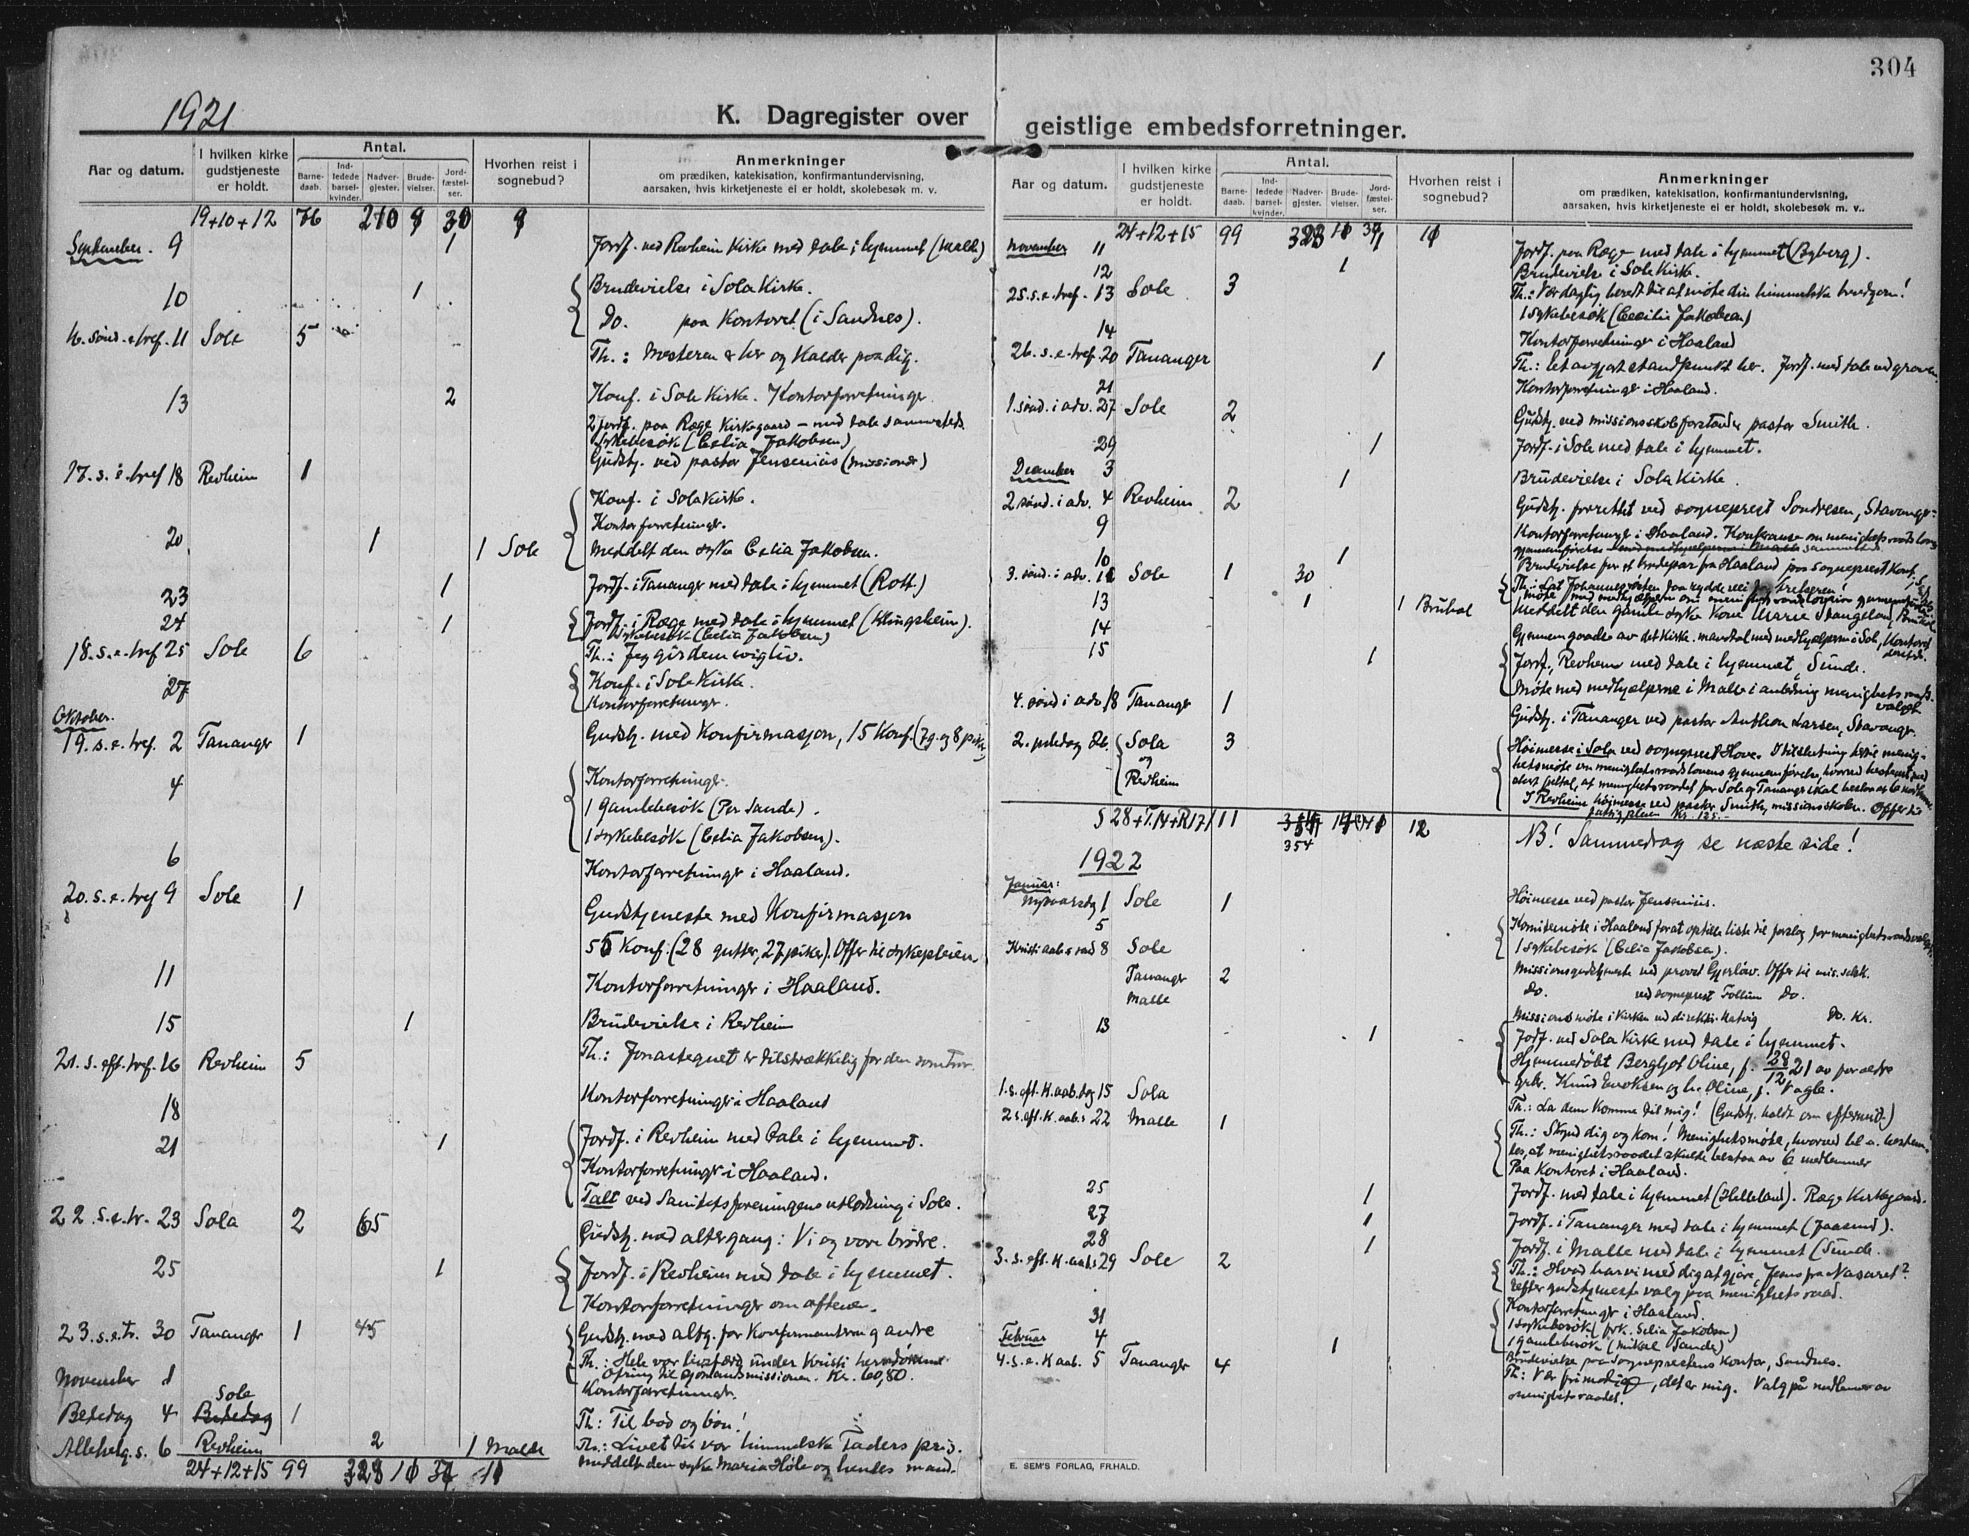 304
1921
K. Dagregister over
geistlige embedsforretninger.
Aar og datum.
I hvilken kirke gudstjeneste er holdt.
Antal.
Barne-daab.
Ind-ledede barsel-kvinder.
Nadver-gjester.
Brude-vielser.
Jord-fæstel-ser.
Hvorhen reist i sognebud?
Anmerkninger
om prædiken, katekisation, konfirmantundervisning,
aarsaken, hvis kirketjeneste ei er holdt, skolebesøk m. v.
19+10+12 76 210
September. 9 1 Jordf. ved Revheim Kirke med tale i hjemmet (Malle)
10 1 Brudevielse i Sola Kirke.
Do. paa Kontoret (i Sandnes).
16. sønd. e. tref. 11 Sole 5
Th.: Mesteren er her og kalder paa dig.
13 2 Konf. i Sole Kirke. Kontorforretninger
2 Jordf. paa Ræge Kirkegaard – med tale sammesteds
Sykebesøk (Celia Jakobsen)
17. s. e. tref 18 Revheim 1 Gudstj. ved pastor Jensenius (missionær)
Konf. i Sola Kirke.
Kontorforretninger.
20 1 1 Sole Meddelt den syke Celia Jakobsen.
23 1 Jordf. i Tananger med tale i hjemmet (Rott)
24 1 Jordf. i Ræge med tale i hjemmet (Klingsheim).
Sykebesøk (Celia Jakobsen)
18. s. e. tref 25 Sole 6 Th.: Jeg gir dem evig liv.
27 Konf. i Sole Kirke.
Kontorforretninger.
Oktober.
19. s. e. tref. 2 Tananger 1 Gudstj. med Konfirmasjon, 15 Konf. (7 g. og 8 piker)
4 Kontorforretninger.
1 gamlebesøk (Per Sande).
1 sykebesøk (Celia Jakobsen).
6 Kontorforretninger i Haaland.
20. s. e. tref 9 Sole 1 Gudstjeneste med Konfirmasjon
55 Konf. (28 gutter, 27 piker). Offer til sykepleien
11 Kontorforretninger i Haaland.
15 1 Brudevielse i Revheim
21. s. eft. tref. 16 Revheim 5 Th.: Jonastegnet er tilstrækkelig for den som tror.
18 Kontorforretninger i Haaland
21 1 Jordf. i Revheim med tale i hjemmet.
Kontorforretninger i Haaland.
Talt ved Sanitetsforeningens utlodning i Sole.
22. s. e. tr. 23 Sola 2 65 Gudstj. med altergang: Vi og vore brødre.
25 1 Jordf. i Revheim med tale i hjemmet.
Kontorforretninger om aftenen.
23. s. e. tr. 30 Tananger 1 45 Gudstj. med altg. for Konfirmanterne og andre
Th.: Hele vor livsfærd under Kristi
Ofring til missionen. Kr. 60,80.
November 1 Kontorforretninger.
Betedag 4 Sole 1 Th: Til bod og bøn!
Allehelg. s. 6 Revheim 2 1 Malle Th.: Livet til vor himmelske Faders pris.
24+12+15 99 323 Meddelt den syke Maria Høle og hendes mand.
Aar og datum.
I hvilken kirke gudstjeneste er holdt.
Antal.
Barne-daab.
Ind-ledede barsel-kvinder.
Nadver-gjester.
Brude-vielser.
Jord-fæstel-ser.
Hvorhen reist i sognebud?
Anmerkninger
om prædiken, katekisation, konfirmantundervisning,
aarsaken, hvis kirketjeneste ei er holdt, skolebesøk m. v..
24+12+15 99 323
November 11 Jordf. paa Ræge med tale i hjemmet (Byberg).
12 1 Brudevielse i Sole Kirke.
25. s. e. tref. 13 Sole 3 Th.: Vær daglig beredt til at møte din himmelske brudgom!
1 sykebesøk (Cecilie Jakobsen)
14 Kontorforretninger i Haaland
26. s. e. tref. 20 Tananger 1 Th.: Et avgjort standpunkt her. Jordf. med tale ved graven.
21 Kontorforretninger i Haaland.
1. sønd. i adv. 27 Sole 2 Gudstj. ved missionsskoleforstander pastor Smith.
29 1 Jordf. i Sole med tale i hjemmet.
December 3 1 Brudevielse i Sola Kirke.
2 sønd. i adv. 4 Revheim 2 Gudstj. forrettet ved sogneprest Sondresen, Stavanger.
9 Kontorforretninger i Haaland.
10 1 Brudevielse for et brudepar fra Haaland paa sogneprest kont.
3. sønd. i adv. 11 Sole 1 30 Th.: Lat Johannesrøsten faa rydde vei for Frelseren!
13 1 1 Brubal Meddelt den gamle syke kone Marie Stangeland,
14
15 1 Jordf., Revheim med tale i hjemmet, Sunde.
Møte med medhjælperne i Malle i anledning menighetsraads valget
4. sønd i adv. 18 Tananger 1 Gudstj. i Tananger ved pastor Anthon Larsen, Stavanger.
2. juledag 26. Sola og Revheim 3 Høimesse i Sola ved sogneprest Hove.
I Revheim høimesse ved pastor Smith, missionsskolen. Offer til
kr. 125.-
S 28+T.14+R17 111 354 12 NB! Sammedrag se næste side!
1922
Januar:
Nyaarsdag 1 Sole 1 Høimesse ved pastor Jensenius.
5 Komitemøte i Haaland
1 sykebesøk (Celia Jakobsen).
Kristi aab. s 8 Sole Missionsgudstjeneste ved provst Gjerløw. Offer til mis. selsk.
Tananger 2 do. ved sogneprest Follum Do.
Malle Missionsmøte i Kirken ved Do. Kr.
13 1 Jordf. ved Sola Kirke med tale i hjemmet.
Hjemmedøbt Bergljot Oline, f. 28/12 21 av forældre
Knud og h. Oline, f. Vagle.
1. s. eft. K. aab. dag 15 Sola Th.: La dem komme til mig! (Gudstj. holdt om efterm.)
2 s. eft. K. aab. s 22 Malle 1 Th.: Skynd dig og kom! Menighetsmøte, hvorved bl. a. bestem-
tes, at menighetsraadet skulde bestaa av 6 medlemmer
Paa Kontoret i Haaland.
25 1 Jordf. med tale i hjemmet (Helleland). Ræge Kirkegaard.
27 1 Jordf. i Tananger med tale i hjemmet (Jaasund).
28 1 Jordf. i Malle med tale i hjemmet (Sunde.
3. s. eft. K. aab. s 29 Sole 2 Th.: Hvad har vi med dig at gjøre, Jesus fra Nasaret?
Efter gudstjeneste valg paa menighetsraad.
31 Kontorforretninger i Haaland.
1 sykebesøk (frk. Selia Jakobsen)
1 gamlebesøk (Mikal Sande)
Februar 4 1 Brudevielse paa Sogneprestens Kontor, Sandnes.
4. s. e. K aab. 5 Tananger 4 Th: Vær frimodige, det er mig. Valg på medlemmer av
menighetsraadet.
E. SEM'S FORLAG, FR.HALD.